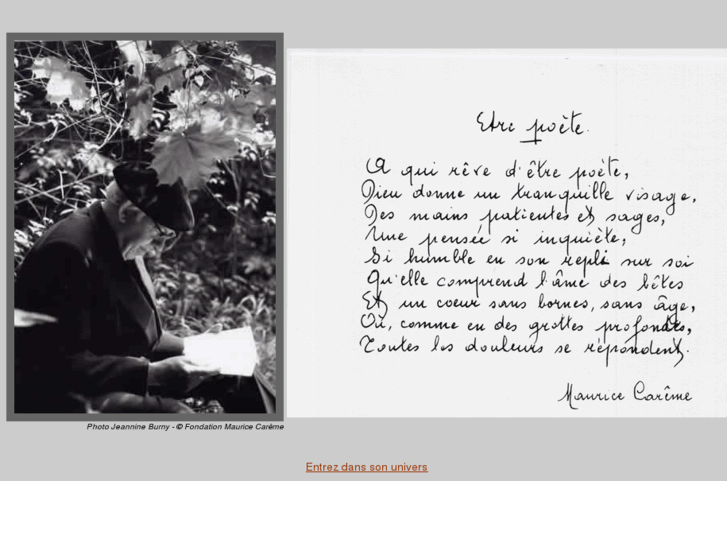 Etre poète.
A qui rêve d'être poète,
Dieu donne un tranquille visage,
Des mains patientes et sages,
Une pensée si inquiète,
Si humble en son repli sur soi
Qu'elle comprend l'âme des bêtes
Et un coeur sans bornes, sans âge,
Où, comme en des grottes profondes,
Toutes les douleurs se répondent.
Maurice Carême
Photo Jeannine Burny - © Fondation Maurice Carême
Entrez dans son univers